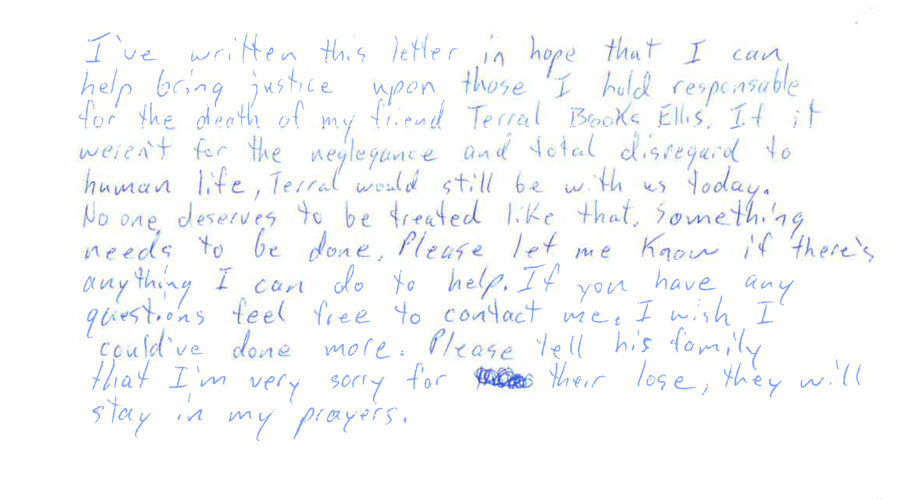 I've written this letter in hope that I can
help bring justice upon those I hold responsable
for the death of my friend Terral Books Ellis. If it
weren't for the neglegance and total disregard to
human life, Terral would still be with us today.
No one deserves to be treated like that. Something
needs to be done. Please let me know if there's
anything I can do to help. If you have any
questions feel free to contact me. I wish I
could've done more. Please tell his family
that I'm very sorry for their lose, they will
stay in my prayers.